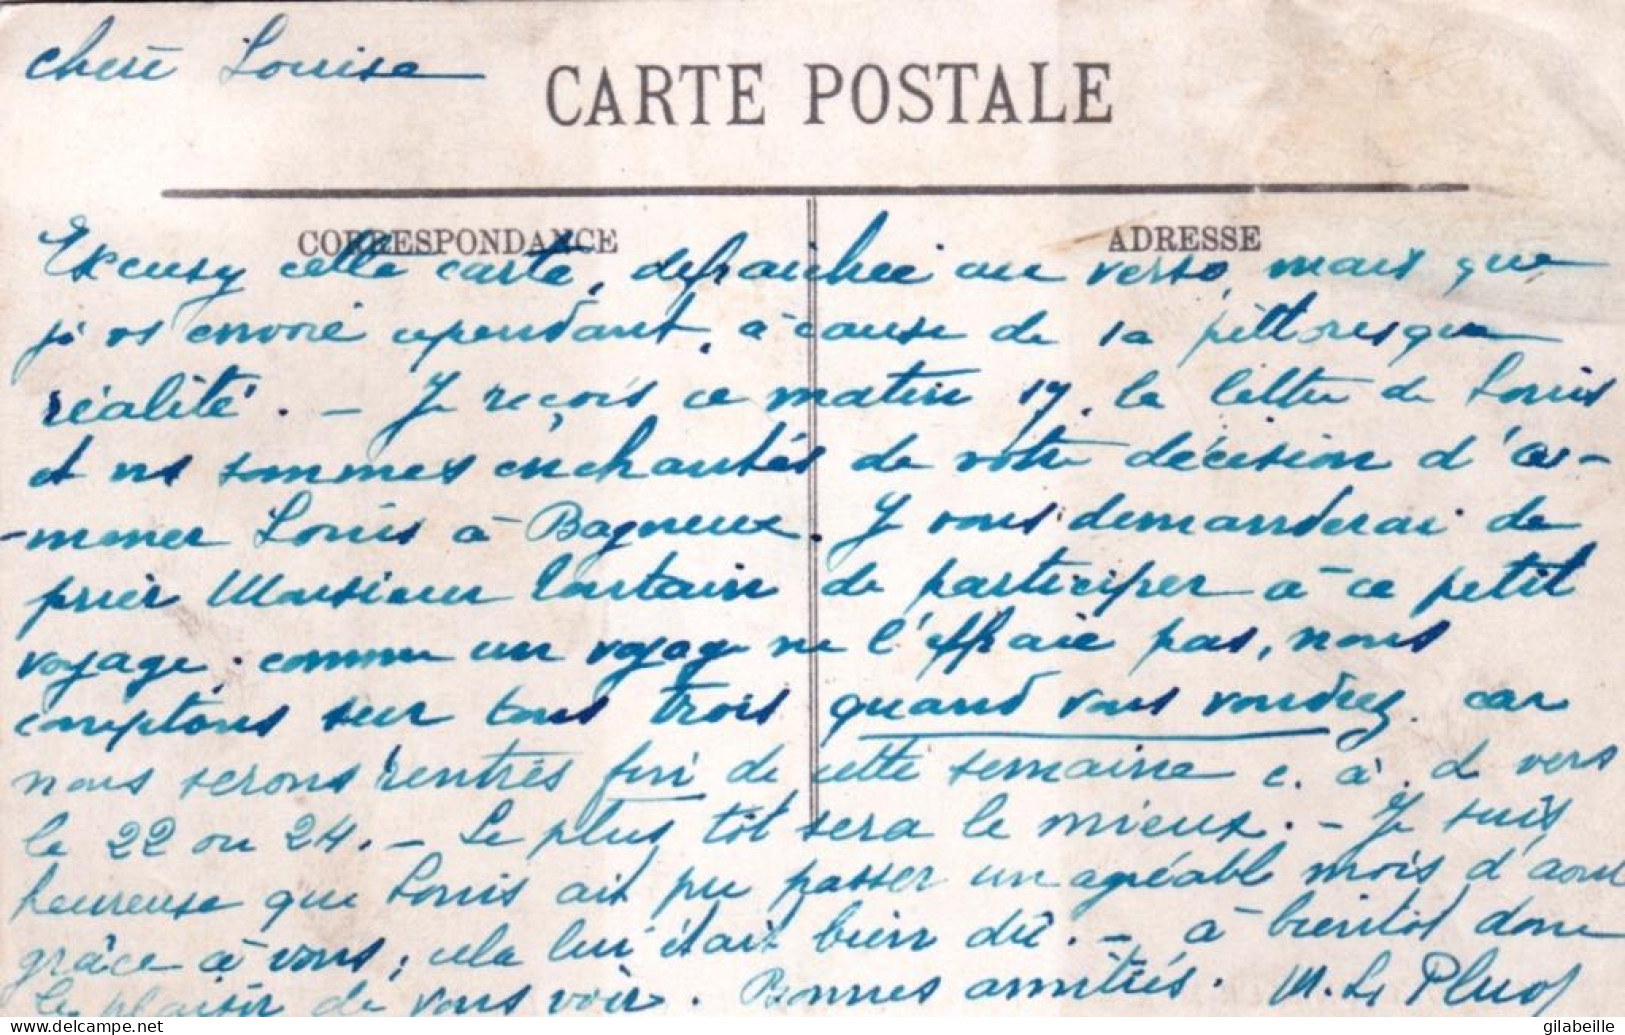 chère Louise
CARTE POSTALE
CORRESPONDANCE
ADRESSE
Excusez cette carte, défraichie au verso, mais que
je vs envoie cependant, à cause de sa pittoresque
réalité. - Je reçois ce matin 17, la lettre de Louis
et ns sommes enchantés de votre décision d'em-
-mener Louis à Bagneux. Je vous demanderai de
prier Monsieur de participer à ce petit
voyage. comme un voyage ne l'effraie pas, nous
comptons sur tous trois quand vous voudrez car
nous serons rentrés fin de cette semaine c. à. d vers
le 22 ou 24. - Le plus tôt sera le mieux. - Je suis
heureuse que Louis ait pu passer un agréable mois d'aout
grâce à vous ; cela lui était bien dû. - à bientôt donc
le plaisir de vous voir. Bonnes amitiés. M. Le
www.delcampe.net
gilabeille